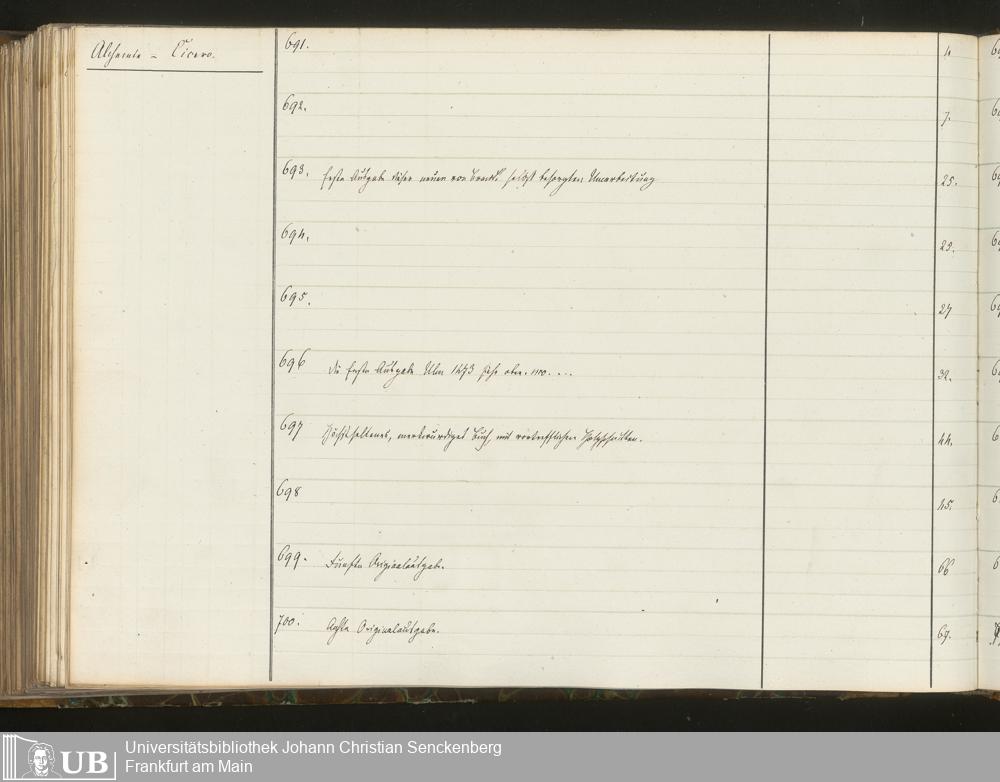 Alchimie – Cicero.
691. 4.
692. 7.
693. Erste Ausgabe dieser neuen von Brandt selbst besorgten Umarbeitung 25.
694. 29.
695. 27
696 Die Erste Ausgabe Ulm 1473 sehe oben. no. ... 32.
697 Höchstseltenes, merkwürdiges Buch, mit vortrefflichen Holzschnitten. 44.
698 45.
699. Fünfte Originalausgabe. 66
700. Achte Originalausgabe. 69.
UB
Universitätsbibliothek Johann Christian Senckenberg
Frankfurt am Main